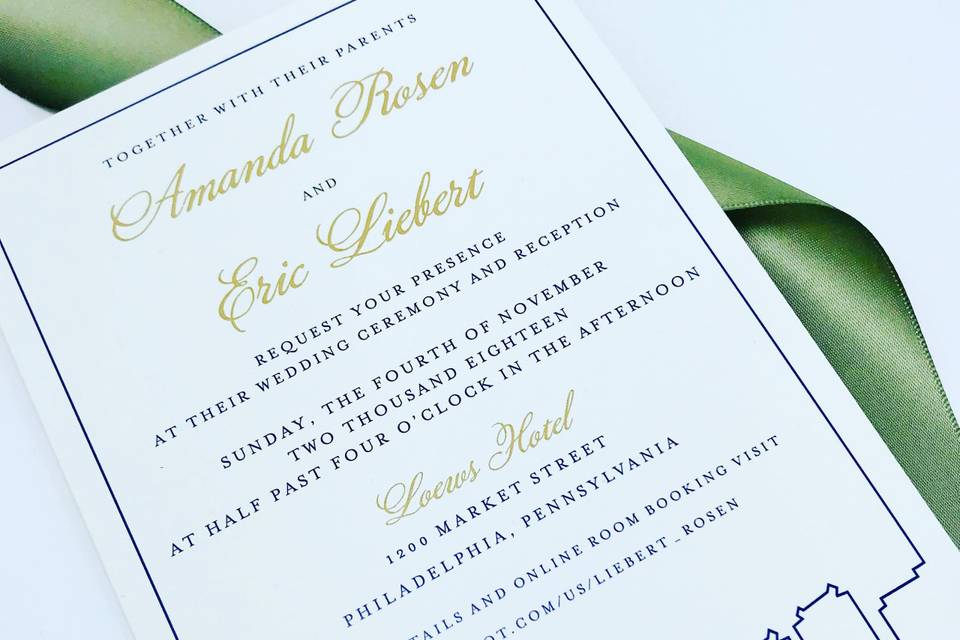 TOGETHER WITH THEIR PARENTS
Amanda Rosen
AND
Eric Liebert
REQUEST YOUR PRESENCE
AT THEIR WEDDING CEREMONY AND RECEPTION
SUNDAY, THE FOURTH OF NOVEMBER
TWO THOUSAND EIGHTEEN
AT HALF PAST FOUR O'CLOCK IN THE AFTERNOON
Loews Hotel
1200 MARKET STREET
PHILADELPHIA, PENNSYLVANIA
AND ONLINE ROOM BOOKING VISIT
.COM/US/LIEBERT_ROSEN